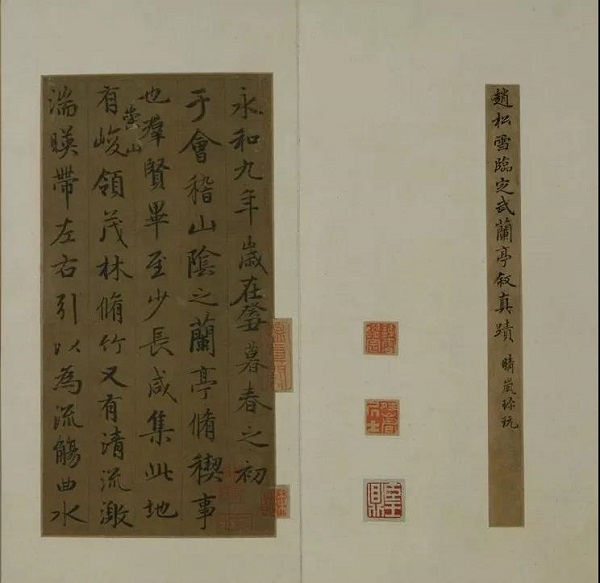 趙松雪臨定武蘭亭敘真蹟 晴嵐珍玩
永和九年歲在癸丑暮春之初
于會稽山陰之蘭亭脩禊事
也羣賢畢至少長咸集此地
有崇山峻領茂林脩竹又有清流激
湍暎帶左右引以為流觴曲水